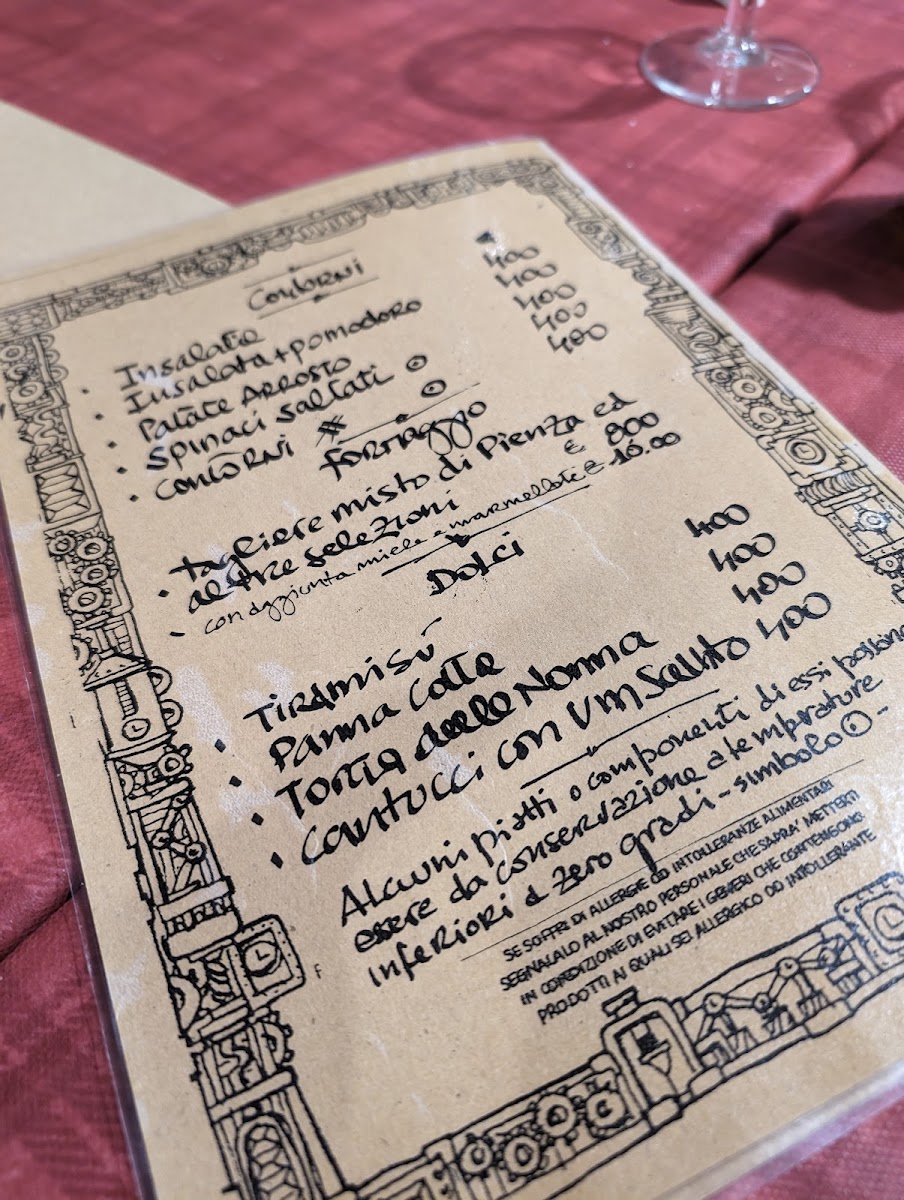 Contorni
• Insalata 400
• Insalata + pomodoro 400
• Patate Arrosto 400
• Spinaci saltati ⊙ 400
• Contorni # ⊙ 400
formaggio
• Tagliere misto di Pienza ed
altre selezioni € 800
• con aggiunta miele e marmellate € 10.00
Dolci
• Tiramisú 400
• Panna Cotta 400
• Torta della Nonna 400
• Cantucci con Vin Santo 400
Alcuni piatti o componenti di essi possono
essere da conservazione a temprature
Inferiori a zero gradi - simbolo ⊙ -
SE SOFFRI DI ALLERGIE OD INTOLLERANZE ALIMENTARI
SEGNALALO AL NOSTRO PERSONALE CHE SAPRA' METTERTI
IN CONDIZIONE DI EVITARE I GENERI CHE CONTENGONO
PRODOTTI AI QUALI SEI ALLERGICO OD INTOLLERANTE